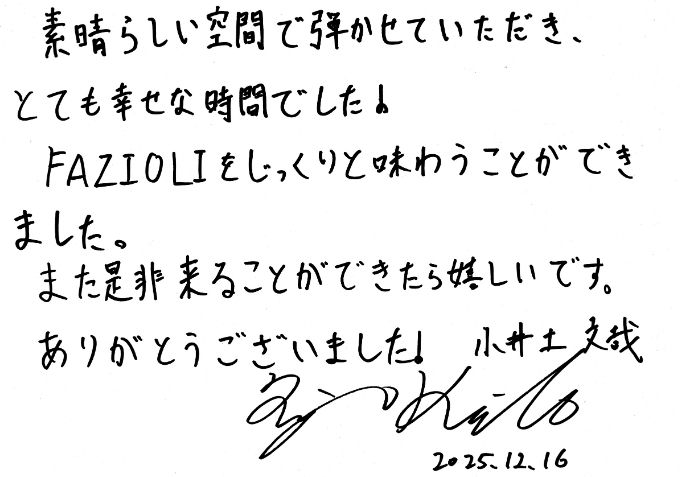 素晴らしい空間で弾かせていただき、
とても幸せな時間でした!
FAZIOLIをじっくりと味わうことができ
ました。
また是非来ることができたら嬉しいです。
ありがとうございました! 小井土文哉
2025.12.16